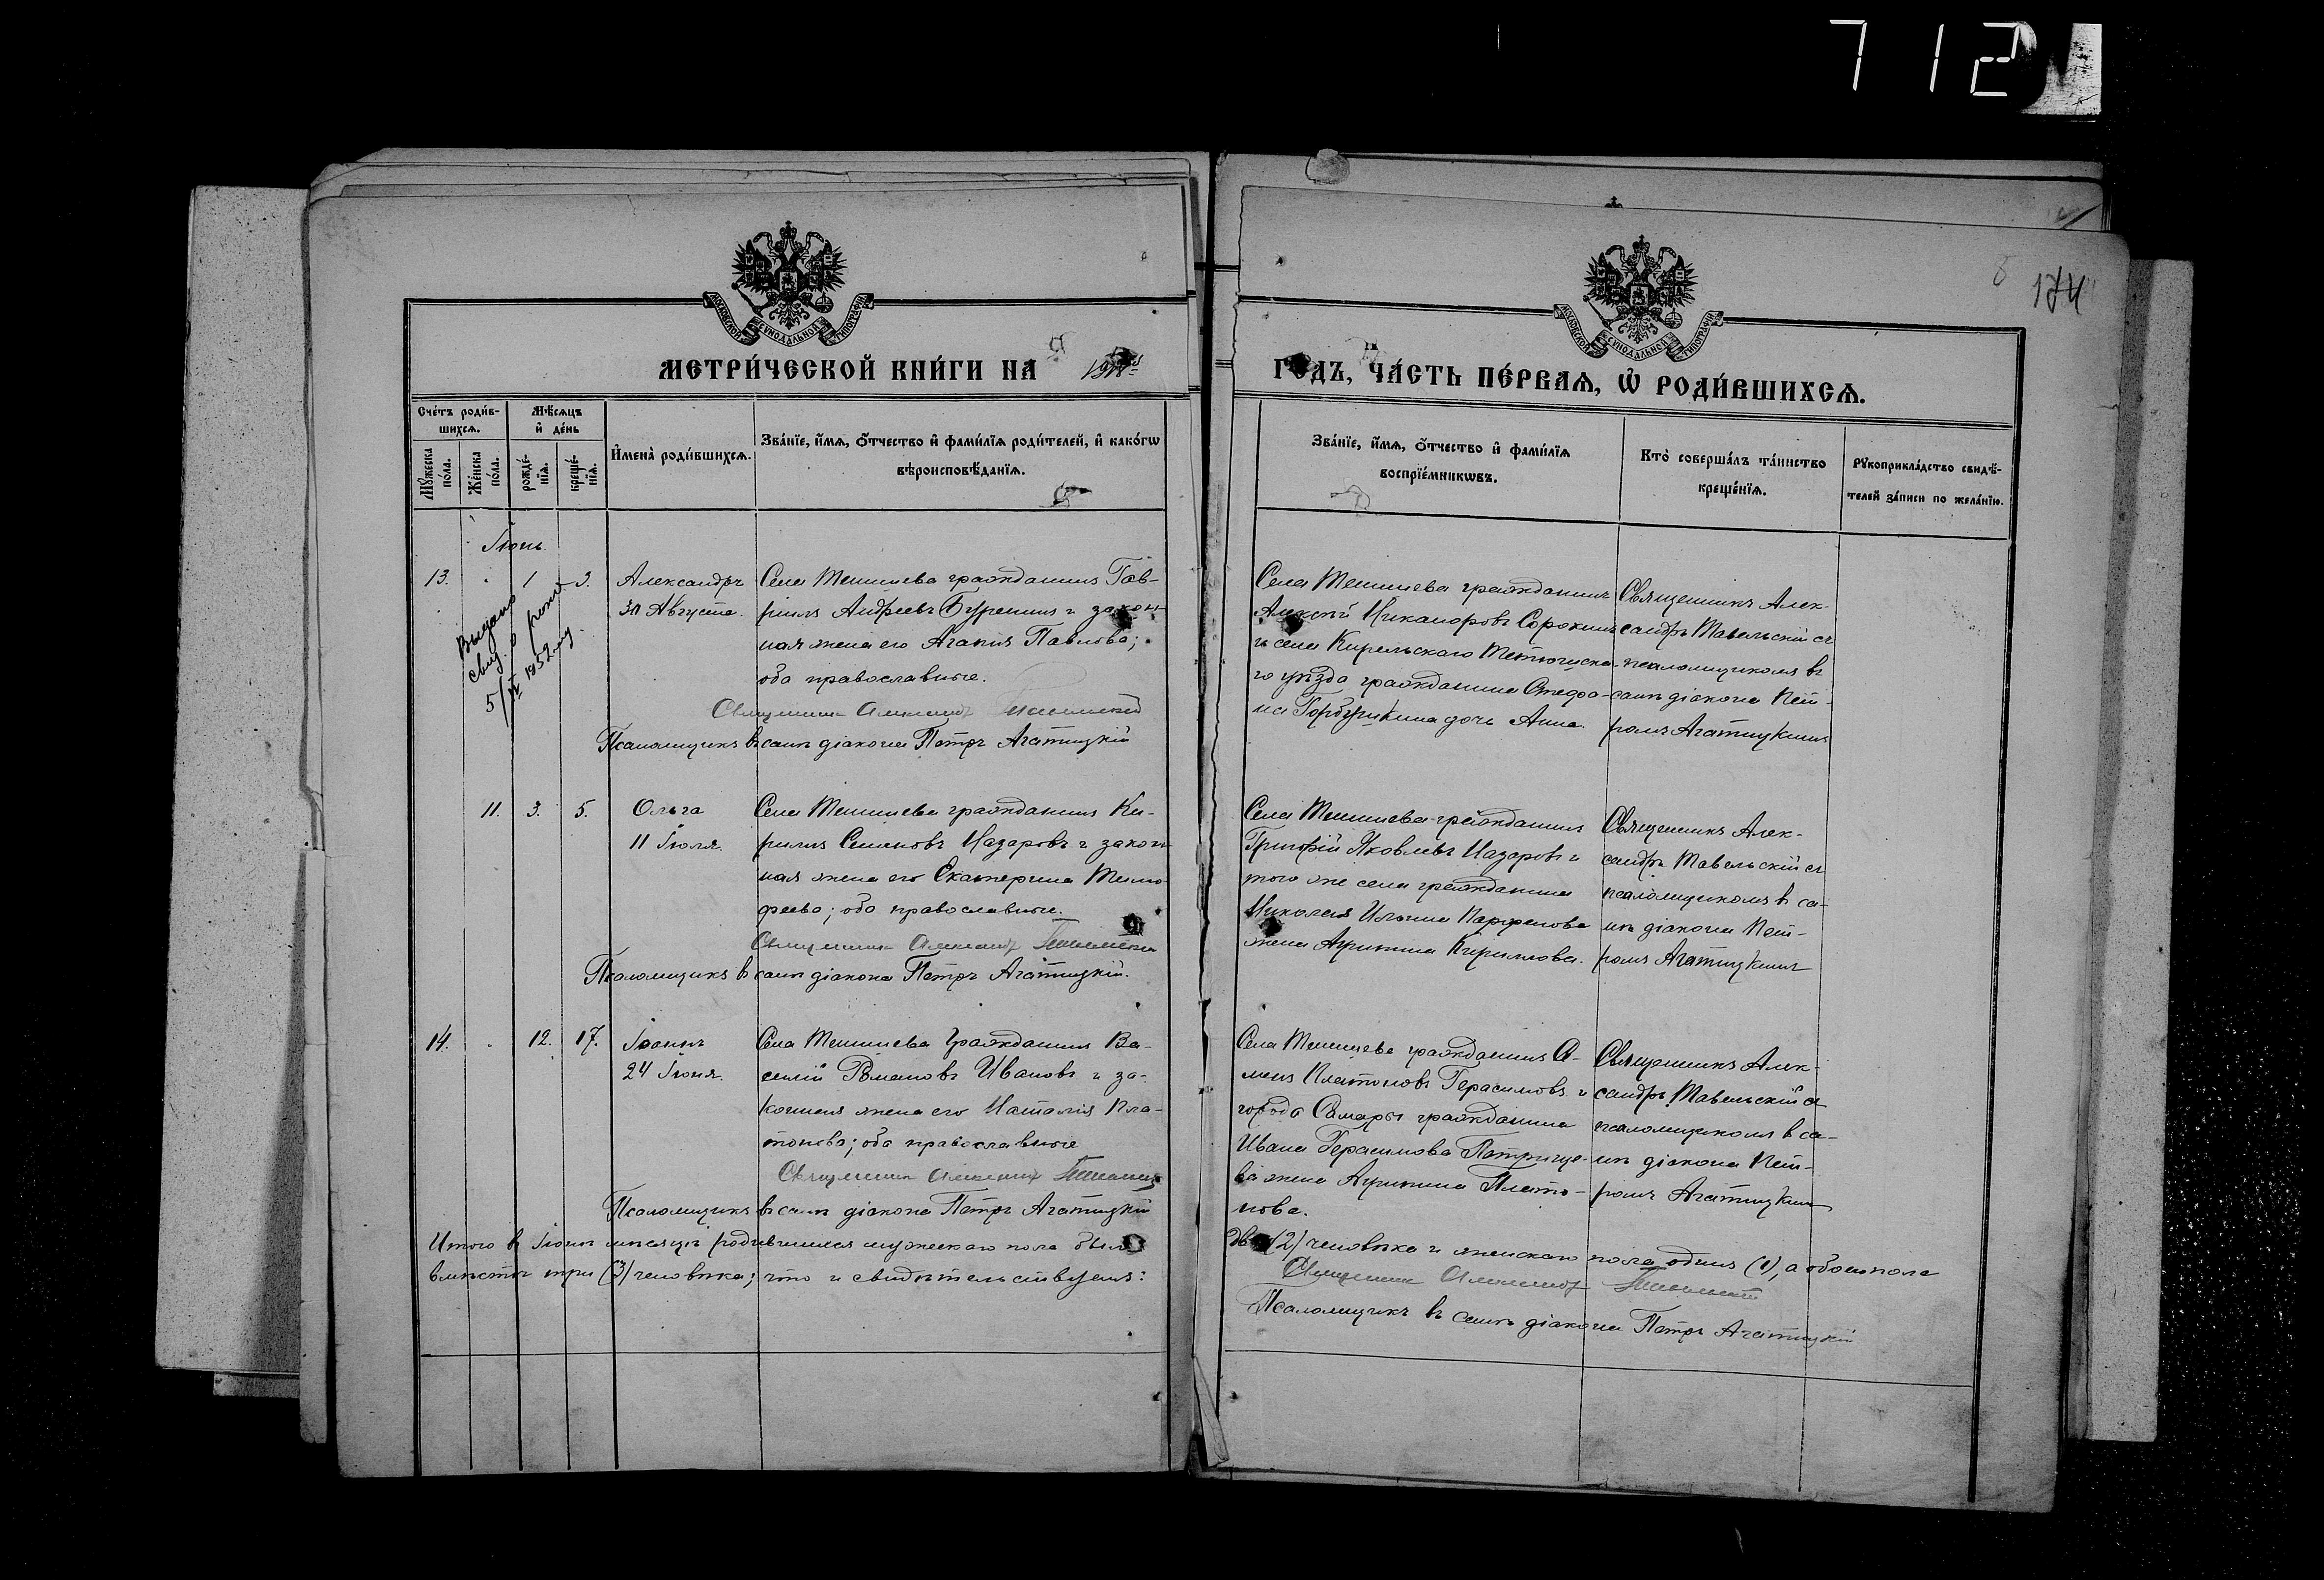 712
174
МОСКОВСКОЙ СѴНОДАЛЬНОЙ ТИПОГРАФІИ
МОСКОВСКОЙ СѴНОДАЛЬНОЙ ТИПОГРАФІИ
МЕТРИ́ЧЕСКОЙ КНИ́ГИ НА
ГОДЪ, ЧА́СТЬ ПЕ́РВАѦ, Ѡ РОДИ́ВШИХСѦ.
Сче́тъ роди́в-
шихсѧ.
Мѣ́сѧцъ
и҆ де́нь
Мꙋ́жеска по́ла.
Же́нска по́ла.
рожде́-
нїѧ.
креще́-
нїѧ.
И҆мена̀ роди́вшихсѧ.
Зва́нїе, и҆́мѧ, ѻ҆́тчество и҆ фами́лїѧ роди́телей, и҆ како́гѡ
вѣроисповѣ́данїѧ.
Зва́нїе, и҆́мѧ, ѻ҆́тчество и҆ фами́лїѧ
воспрїе́мникѡвъ.
Кто̀ соверша́лъ та́инство
креще́нїѧ.
Рꙋкоприкла́дство свидѣ́-
телей за́писи по жела́нїю.
Іюнь.
13. 1 3. Александръ
30 Августа.
Выдано
свид. о рожд.
5/IV 1952 г.
Села Теншева гражданинъ Гав-
риилъ Андреевъ Буренинъ и закон-
ная жена его Агапія Павлова;
оба православные.
Священникъ Александръ
Псаломщикъ въ санѣ діакона Петръ Агатицкій
Села Теншева гражданинъ
Алексѣй Никаноровъ Сорокинъ
и села Кирельскаго Тетюшска-
го уѣзда гражданина Стефа-
на Горбушкина дочь Анна.
Священникъ Алек-
сандръ Тавельскій съ
псаломщикомъ въ
санѣ діакона Пет-
ромъ Агатицкимъ
11. 3. 5. Ольга
11 Іюля.
Села Теншева гражданинъ Ки-
риллъ Семеновъ Назаровъ и закон-
ная жена его Екатерина Тимо-
феева; оба православные.
Священникъ Александръ
Псаломщикъ въ санѣ діакона Петръ Агатицкій.
Села Теншева гражданинъ
Григорій Яковлевъ Назаровъ и
того же села гражданина
Николая Ильина Парфенова
жена Агрипина Кириллова.
Священникъ Алек-
сандръ Тавельскій съ
псаломщикомъ въ са-
нѣ діакона Пет-
ромъ Агатицкимъ
14. 12. 17. Іоаннъ
24 Іюня.
Села Теншева гражданинъ Ва-
силій Романовъ Ивановъ и за-
конная жена его Наталія Пла-
тонова; оба православные
Священникъ Александръ
Псаломщикъ въ санѣ діакона Петръ Агатицкій
Села Теншева гражданинъ С-
менъ Платоновъ Герасимовъ и
города Самары гражданина
Ивана Герасимова Петрище-
ва жена Агрипина Плато-
нова.
Священникъ Алек-
сандръ Тавельскій съ
псаломщикомъ въ са-
нѣ діакона Пет-
ромъ Агатицкимъ
Итого въ Іюнѣ мѣсяцѣ родившихся мужескаго пола было
два (2) человѣка и женскаго пола одинъ (1), а обоего пола
вмѣстѣ три (3) человѣка; что и свидѣтельствуемъ:
Священникъ Александръ
Псаломщикъ въ санѣ діакона Петръ Агатицкій